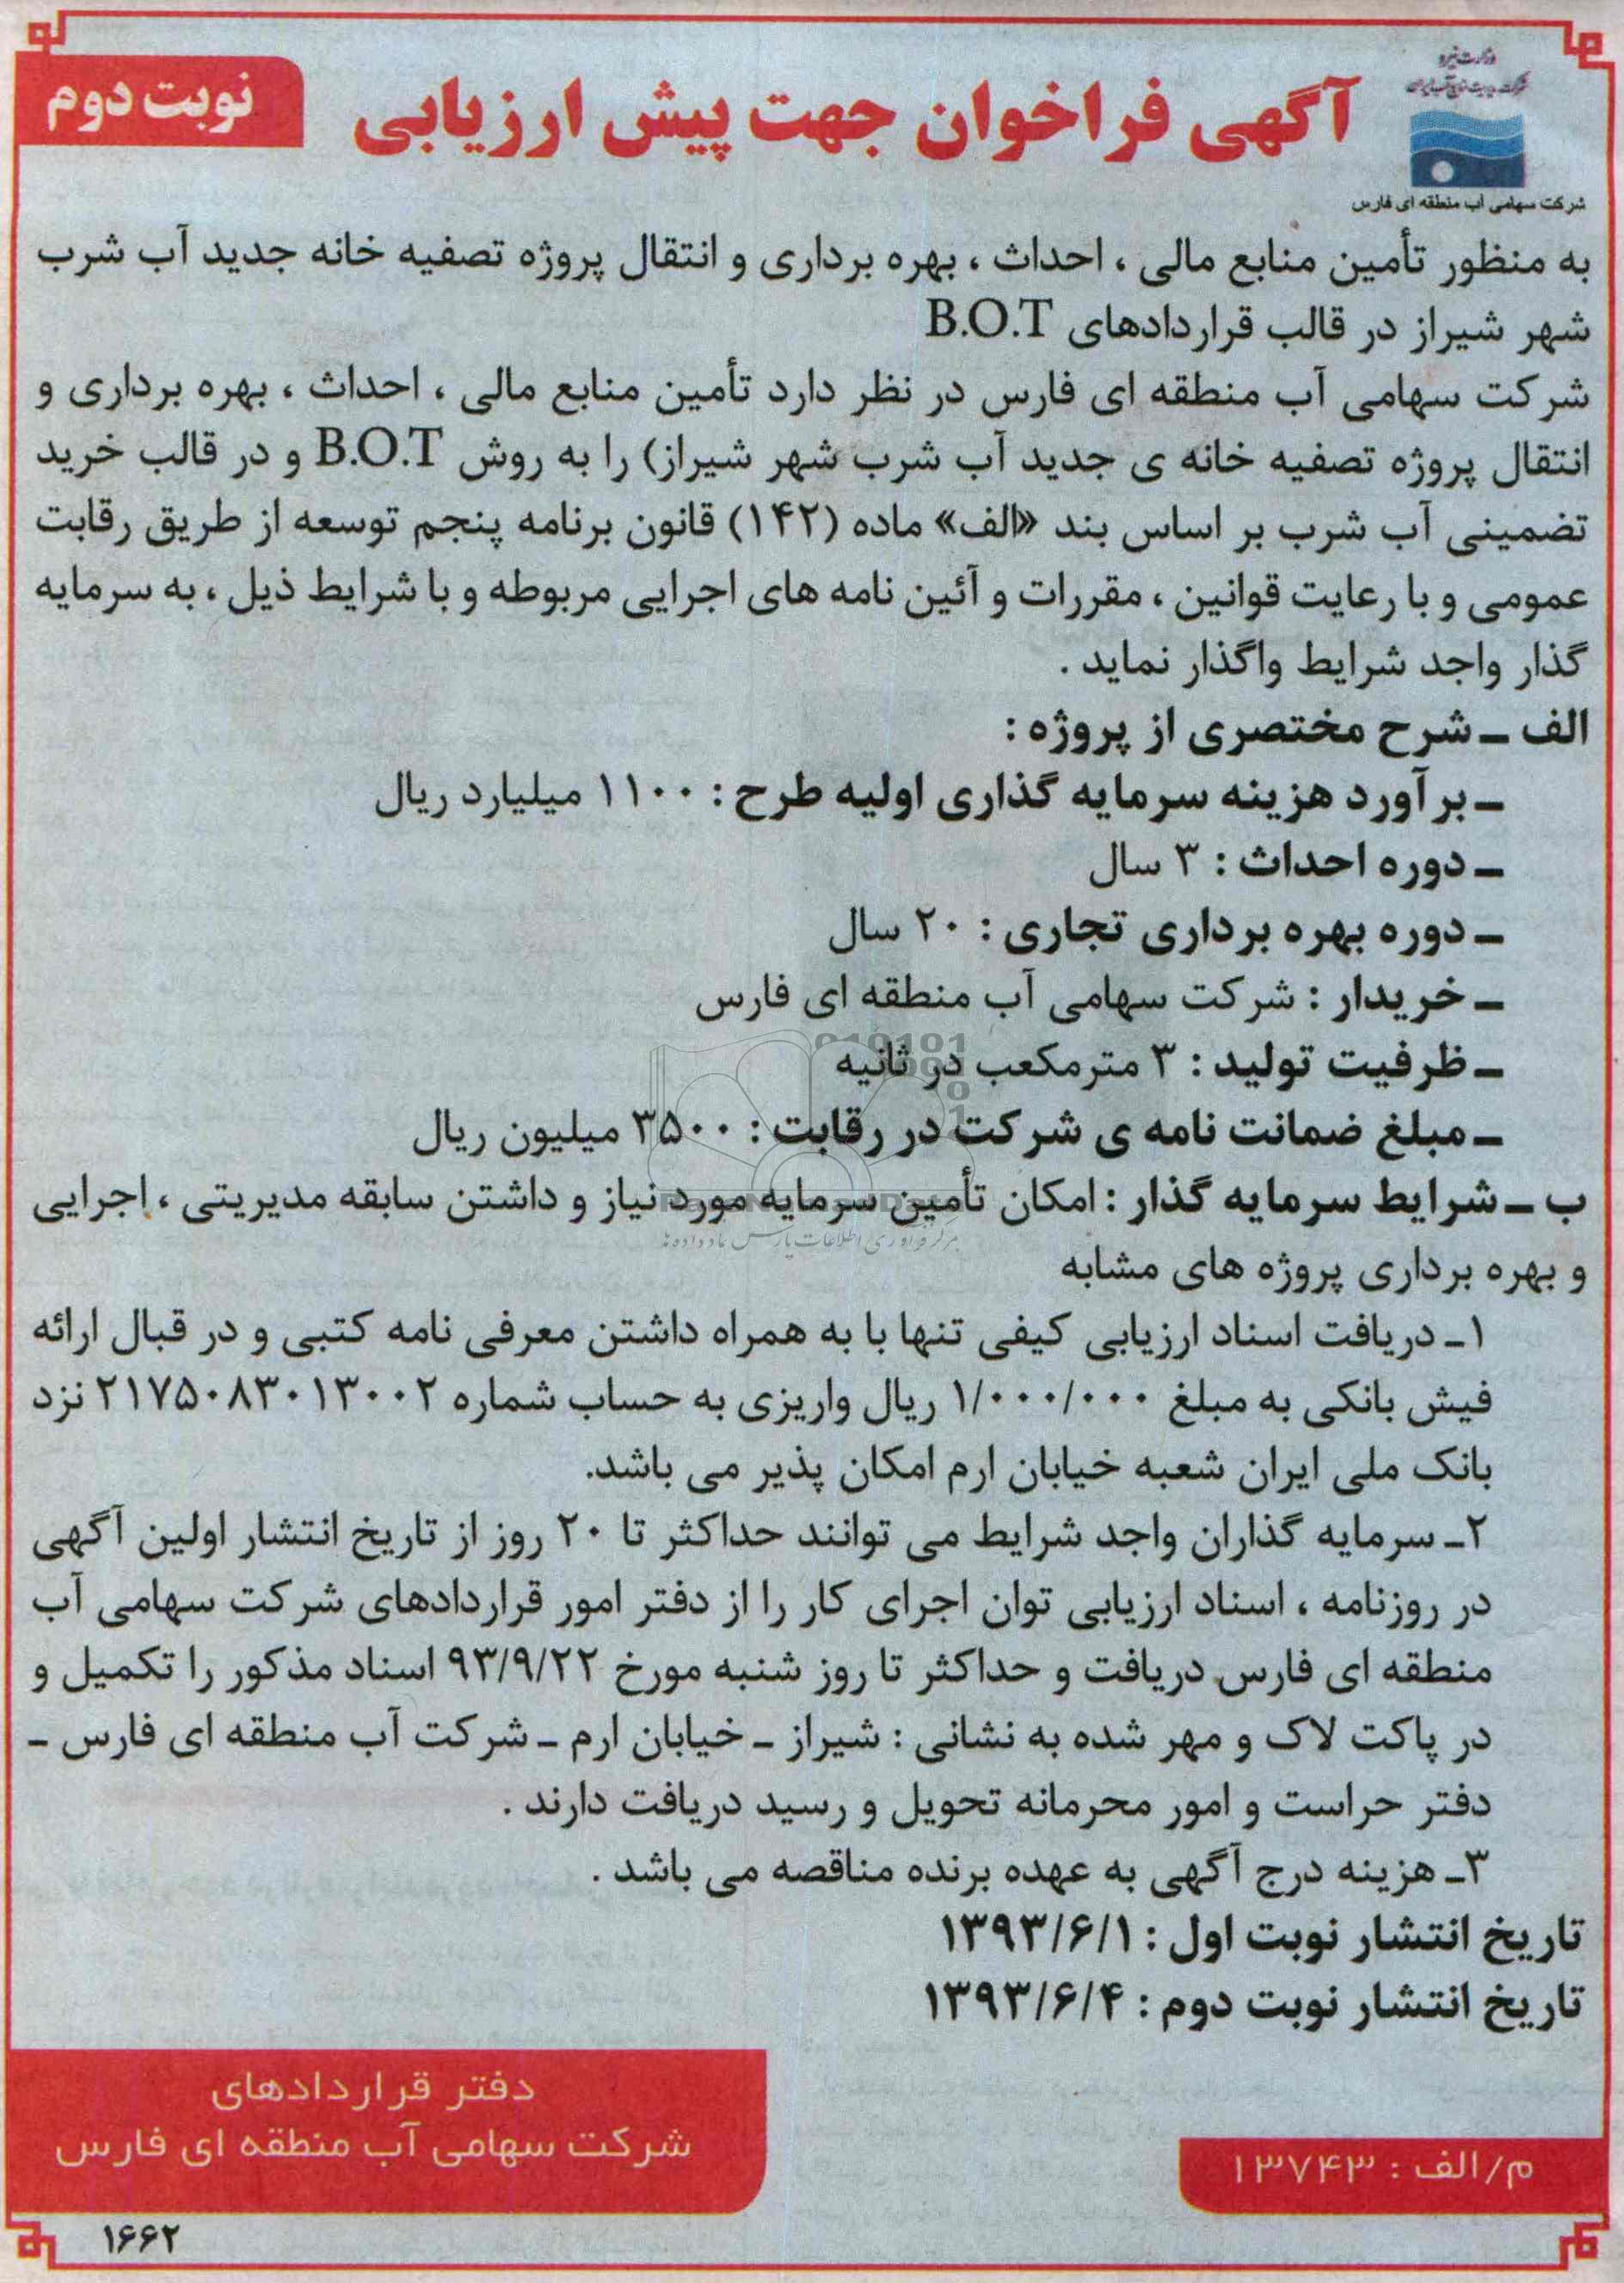 وزارت نیرو
شرکت سهامی آب منطقه ای فارس
آگهی فراخوان جهت پیش ارزیابی
نوبت دوم
به منظور تأمین منابع مالی ، احداث ، بهره برداری و انتقال پروژه تصفیه خانه جدید آب شرب
شهر شیراز در قالب قراردادهای B.O.T
شرکت سهامی آب منطقه ای فارس در نظر دارد تأمین منابع مالی ، احداث ، بهره برداری و
انتقال پروژه تصفیه خانه ی جدید آب شرب شهر شیراز) را به روش B.O.T و در قالب خرید
تضمینی آب شرب بر اساس بند «الف» ماده (۱۴۲) قانون برنامه پنجم توسعه از طریق رقابت
عمومی و با رعایت قوانین ، مقررات و آئین نامه های اجرایی مربوطه و با شرایط ذیل ، به سرمایه
گذار واجد شرایط واگذار نماید .
الف ـ شرح مختصری از پروژه :
ـ بر آورد هزینه سرمایه گذاری اولیه طرح : ۱۱۰۰ میلیارد ریال
ـ دوره احداث : ۳ سال
ـ دوره بهره برداری تجاری : ۲۰ سال
ـ خریدار : شرکت سهامی آب منطقه ای فارس
ـ ظرفیت تولید : ۳ مترمکعب در ثانیه
ـ مبلغ ضمانت نامه ی شرکت در رقابت : ۳۵۰۰ میلیون ریال
ب ـ شرایط سرمایه گذار : امکان تأمین سرمایه مورد نیاز و داشتن سابقه مدیریتی ، اجرایی
و بهره برداری پروژه های مشابه
۱ـ دریافت اسناد ارزیابی کیفی تنها با به همراه داشتن معرفی نامه کتبی و در قبال ارائه
فیش بانکی به مبلغ ۱/۰۰۰/۰۰۰ ریال واریزی به حساب شماره ۲۱۷۵۰۸۳۰۱۳۰۰۲ نزد
بانک ملی ایران شعبه خیابان ارم امکان پذیر می باشد.
۲ـ سرمایه گذاران واجد شرایط می توانند حداکثر تا ۲۰ روز از تاریخ انتشار اولین آگهی
در روزنامه ، اسناد ارزیابی توان اجرای کار را از دفتر امور قراردادهای شرکت سهامی آب
منطقه ای فارس دریافت و حداکثر تا روز شنبه مورخ ۹۳/۹/۲۲ اسناد مذکور را تکمیل و
در پاکت لاک و مهر شده به نشانی : شیراز ـ خیابان ارم ـ شرکت آب منطقه ای فارس ـ
دفتر حراست و امور محرمانه تحویل و رسید دریافت دارند .
۳ـ هزینه درج آگهی به عهده برنده مناقصه می باشد .
تاریخ انتشار نوبت اول : ۱۳۹۳/۶/۱
تاریخ انتشار نوبت دوم : ۱۳۹۳/۶/۴
دفتر قراردادهای
شرکت سهامی آب منطقه ای فارس
م/الف : ۱۳۷۴۳
۱۶۶۲